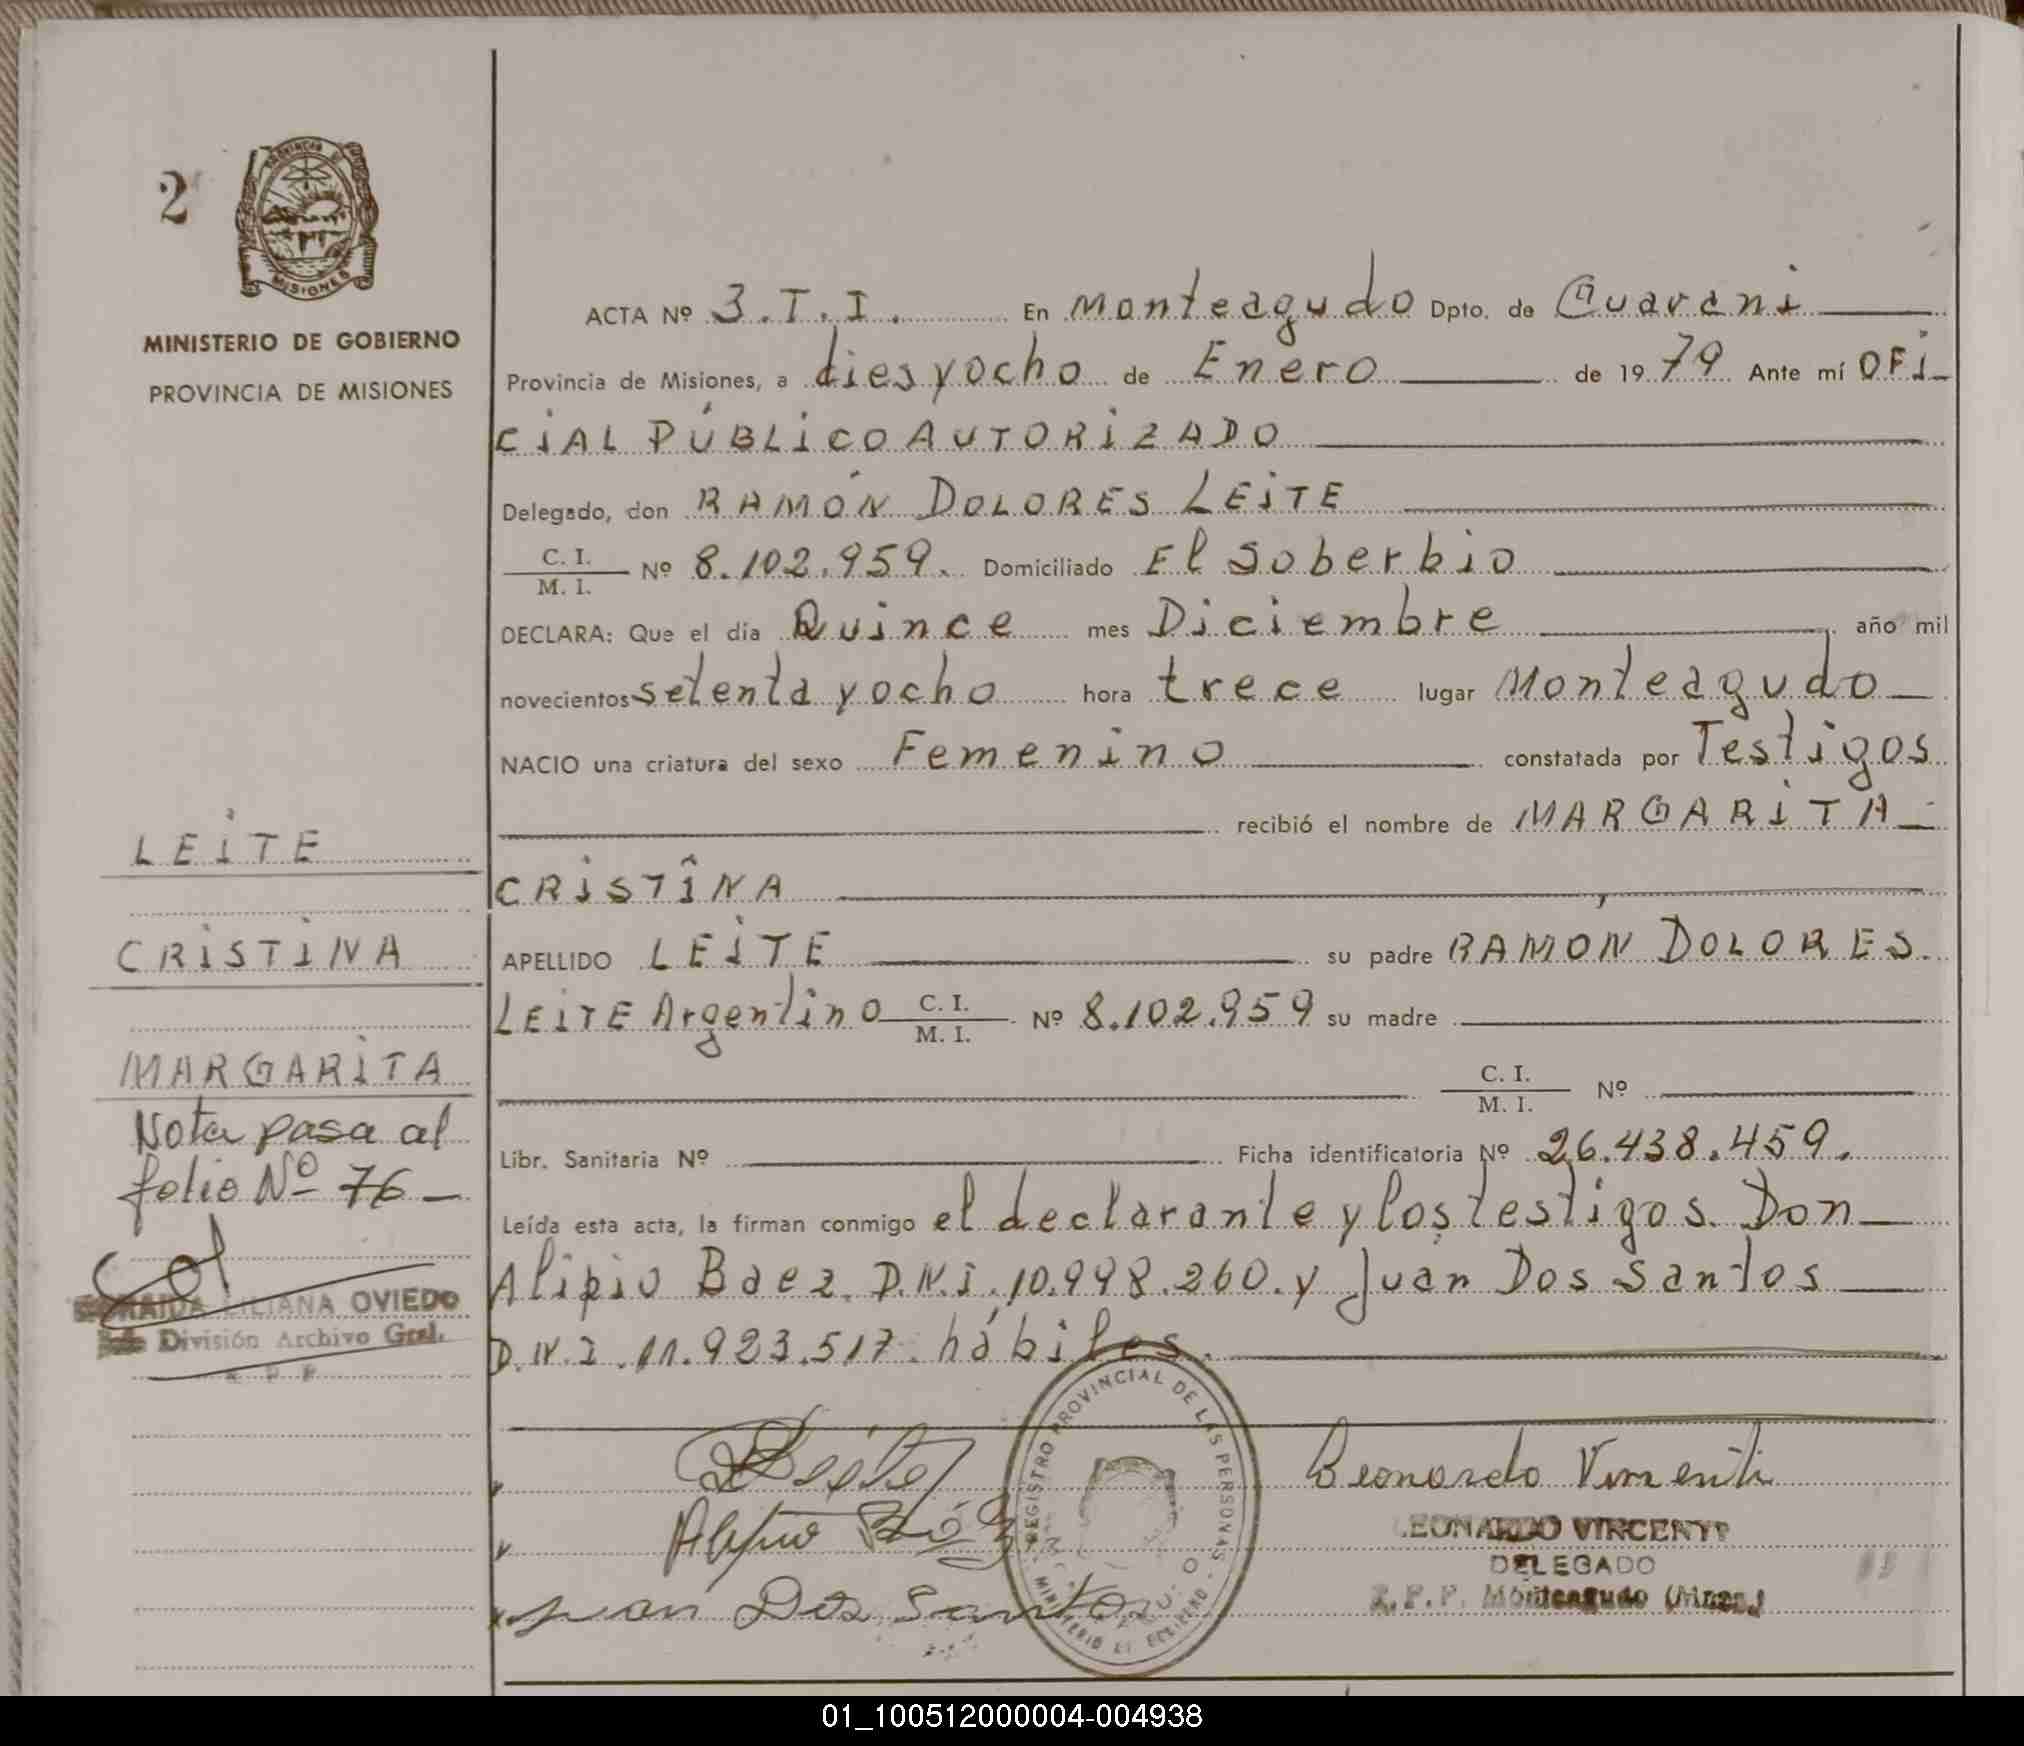 2
PROVINCIA DE
MISIONES
MINISTERIO DE GOBIERNO
PROVINCIA DE MISIONES
ACTA Nº 3.T.I. En Monteagudo Dpto. de Guarani
Provincia de Misiones, a diesyocho de Enero de 1979 Ante mí OFi
CiAL PÚBLiCO AUTORiZADO
Delegado, don RAMÓN DOLORES LEiTE
C. I.
M. I. Nº 8.102.959. Domiciliado El Soberbio
DECLARA: Que el día Quince mes Diciembre año mil
novecientos setenta y ocho hora trece lugar Monteagudo
NACIO una criatura del sexo Femenino constatada por Testigos
recibió el nombre de MARGARiTA
CRiSTÎNA
APELLIDO LEiTE su padre RAMÓN DOLORES.
LEiTE Argentino C. I.
M. I. Nº 8.102.959 su madre
C. I.
M. I. Nº
Libr. Sanitaria Nº Ficha identificatoria Nº 26.438.459.
Leída esta acta, la firman conmigo el declarante y los testigos. Don
Alipio Baez. D.N.i. 10.998.260. y Juan Dos Santos
D.N.I. 11.923.517. hábiles.
LEiTE
CRiSTiNA
MARGARiTA
Nota pasa al
folio Nº 76
LILIANA OVIEDO
División Archivo Gral.
Alipio Báez
Juan Dos Santos
REGISTRO PROVINCIAL DE LAS PERSONAS
MINISTERIO DE GOBIERNO
Leonardo Vincenti
LEONARDO VINCENTI
DELEGADO
R.P.P. Monteagudo (Mnes.)
01_100512000004-004938